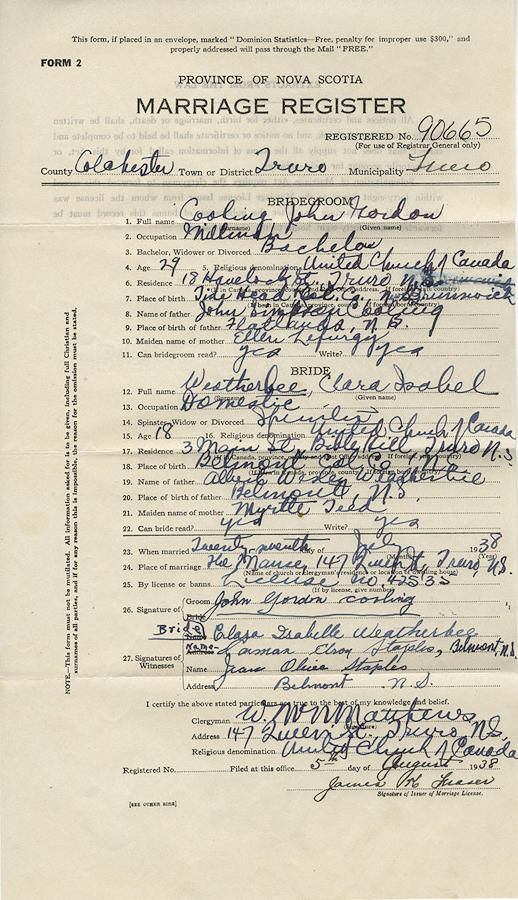 This form, if placed in an envelope, marked "Dominion Statistics—Free, penalty for improper use $300," and
properly addressed will pass through the Mail "FREE."
FORM 2
PROVINCE OF NOVA SCOTIA
MARRIAGE REGISTER
REGISTERED No. 90665
(For use of Registrar General only)
County Colchester Town or District Truro Municipality Truro
BRIDEGROOM
1. Full name Cooling John Gordon
(Surname) (Given name)
2. Occupation Millman
3. Bachelor, Widower or Divorced Bachelor
4. Age 29 5. Religious denomination United Church of Canada
6. Residence 18 Havelock St. Truro N.S.
7. Place of birth Tide Head Rest. Co. N. Brunswick
8. Name of father John Simpson Cooling
9. Place of birth of father Flatlands, N.B.
10. Maiden name of mother Ellen
11. Can bridegroom read? yes Write? yes
BRIDE
12. Full name Weatherbee, Clara Isabel
(Given name)
13. Occupation Domestic
14. Spinster, Widow or Divorced Spinster
15. Age 18 16. Religious denomination United Church of Canada
17. Residence 3 Main St., Bible Hill Truro N.S.
18. Place of birth Belmont Col. Co. N.S.
19. Name of father Albert Wesley Weatherbee
20. Place of birth of father Belmont, N.S.
21. Maiden name of mother Myrtle Teed
22. Can bride read? yes Write? yes
23. When married Twenty seventh day of July 1938
(Month) (Year)
24. Place of marriage The Manse, 147 Queen St Truro, N.S.
(Name of church or clergyman's residence or location of dwelling home)
25. By license or banns License no. 42535
(If by license, give number)
26. Signature of Groom John Gordon Cooling
Bride Clara Isabelle Weatherbee
Name Carman Elroy Staples, Belmont N.S.
27. Signatures of Witnesses
Name Jean Olive Staples
Address Belmont N.S.
I certify the above stated particulars are true to the best of my knowledge and belief.
Clergyman W. W. Matthews
Address 147 Queen St. Truro N.S.
Religious denomination United Church of Canada
Registered No. Filed at this office 5th day of August 1938
James H. Fraser
Signature of Issuer of Marriage License.
[SEE OTHER SIDE]
NOTE.—This form must not be mutilated. All information asked for is to be given, including full Christian and
surnames of all parties, and if for any reason this is impossible, the reason for the omission must be stated.